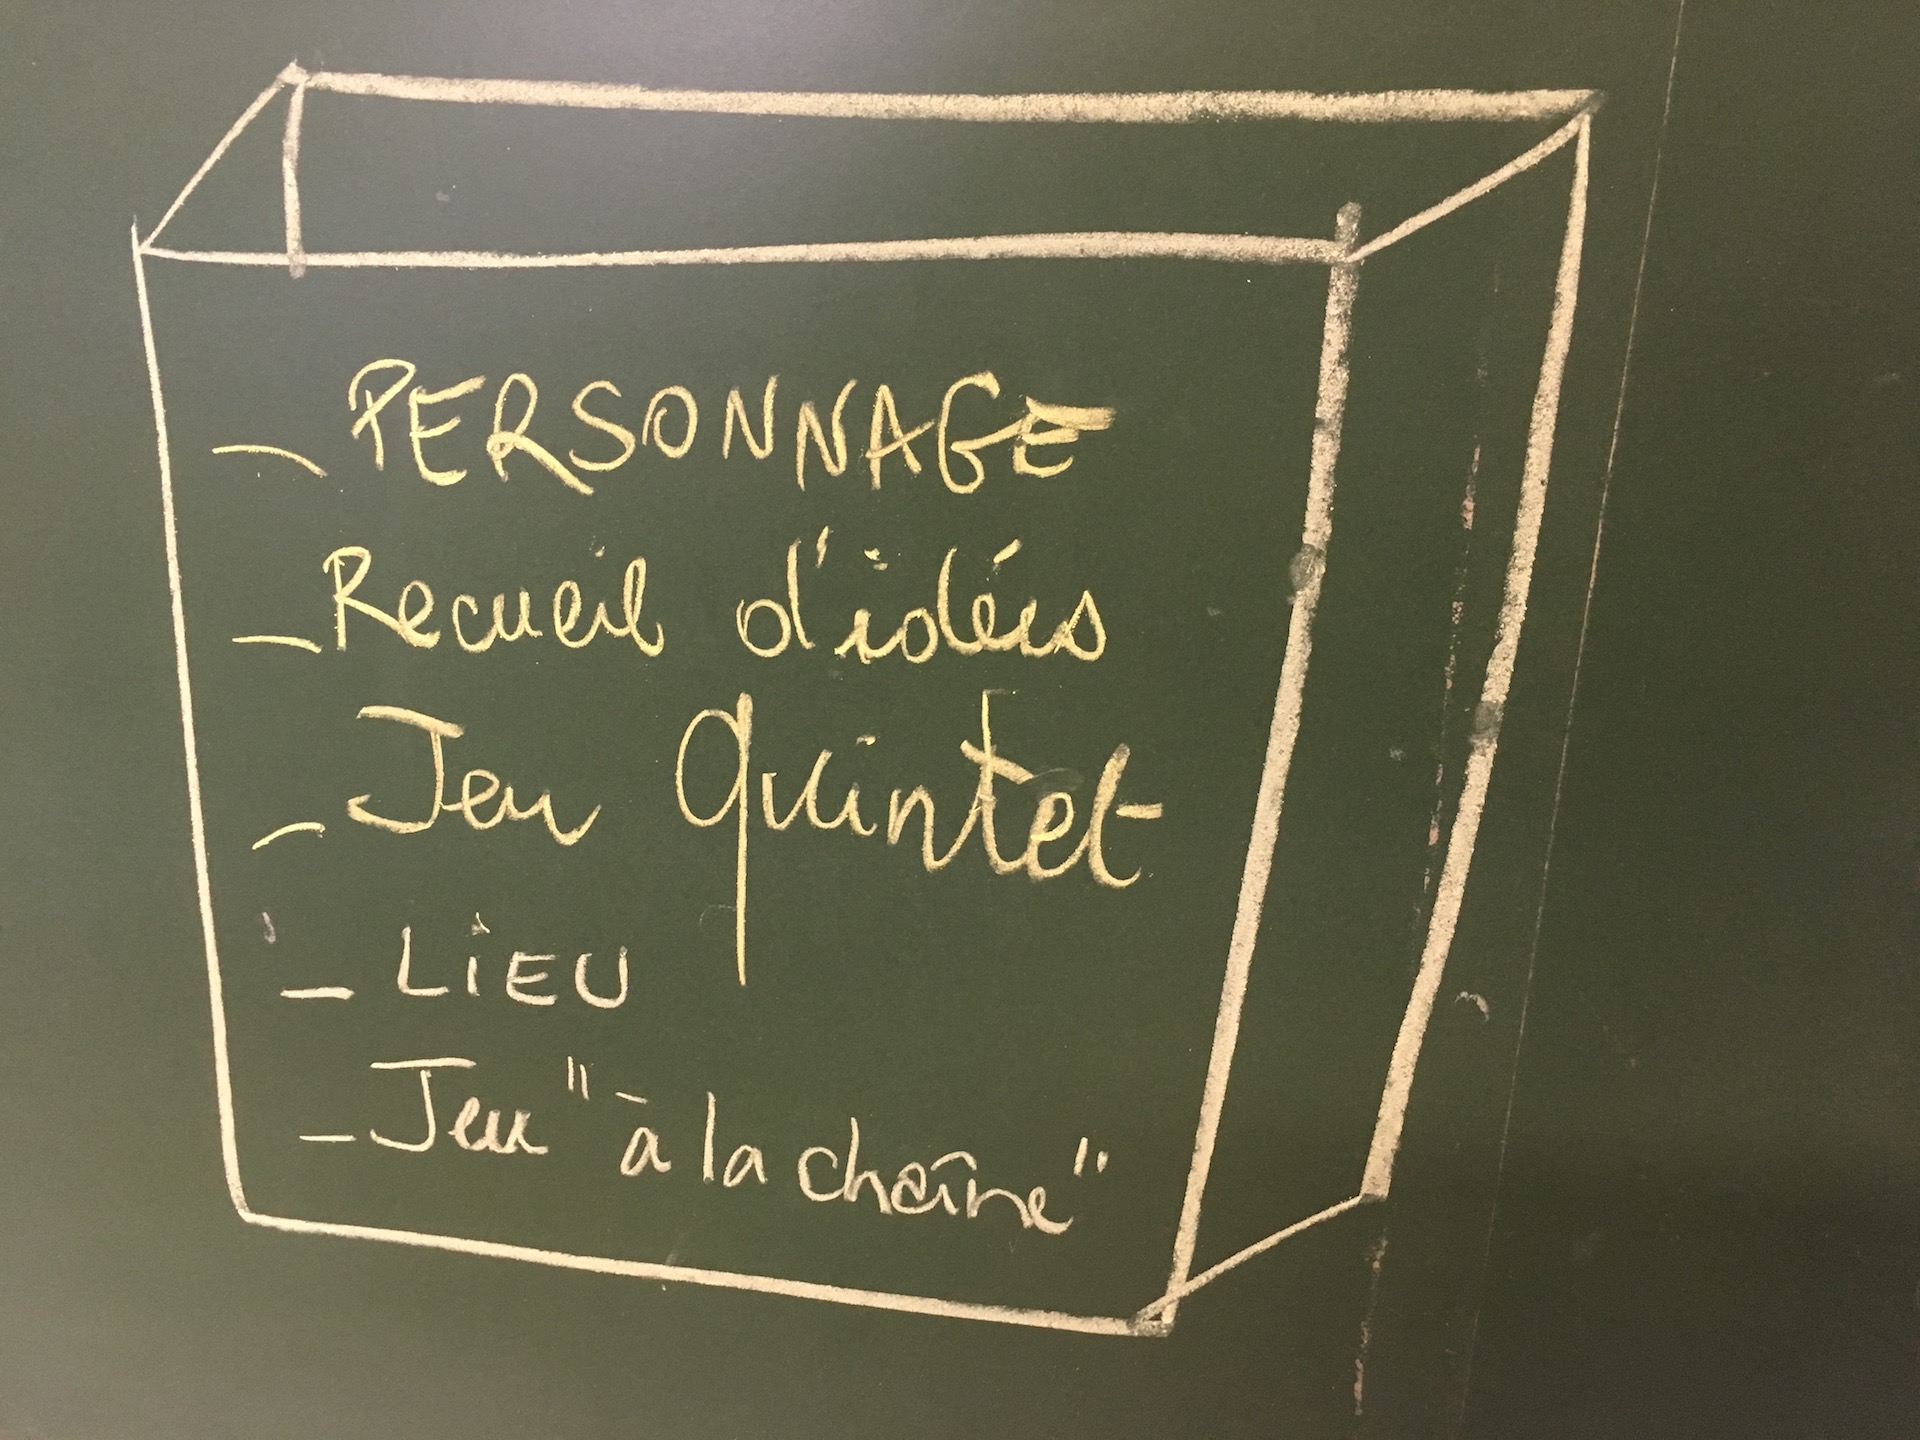 - PERSONNAGE
- Recueil d'idées
- Jeu Quintet
- LiEU
- Jeu "à la chaîne"